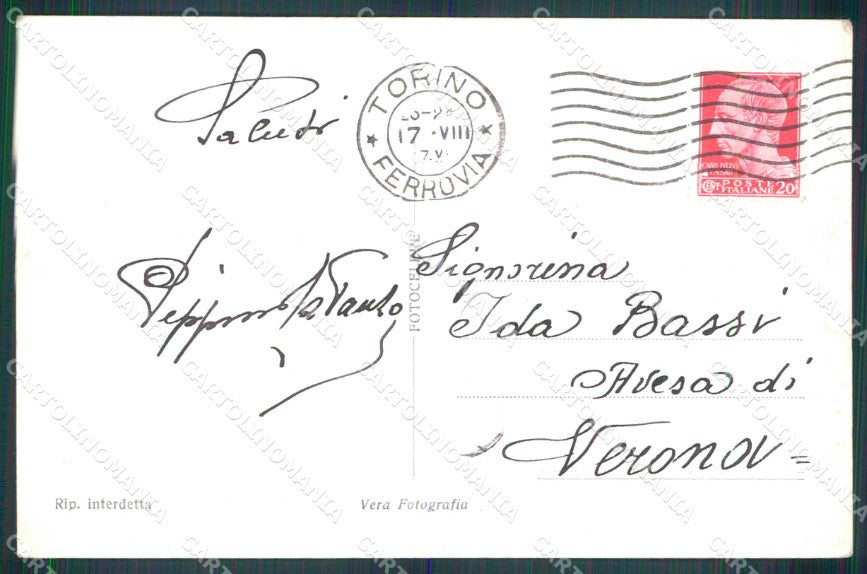 Saluti
TORINO
17 · VIII
FERROVIA
CAIVS IVLIVS
CAESAR
CENT POSTE
ITALIANE 20
Peppino
Signorina
Ida Bassi
Avesa di
Verona =
FOTOCELERE
Rip. interdetta
Vera Fotografia
CARTOLINOMANIA